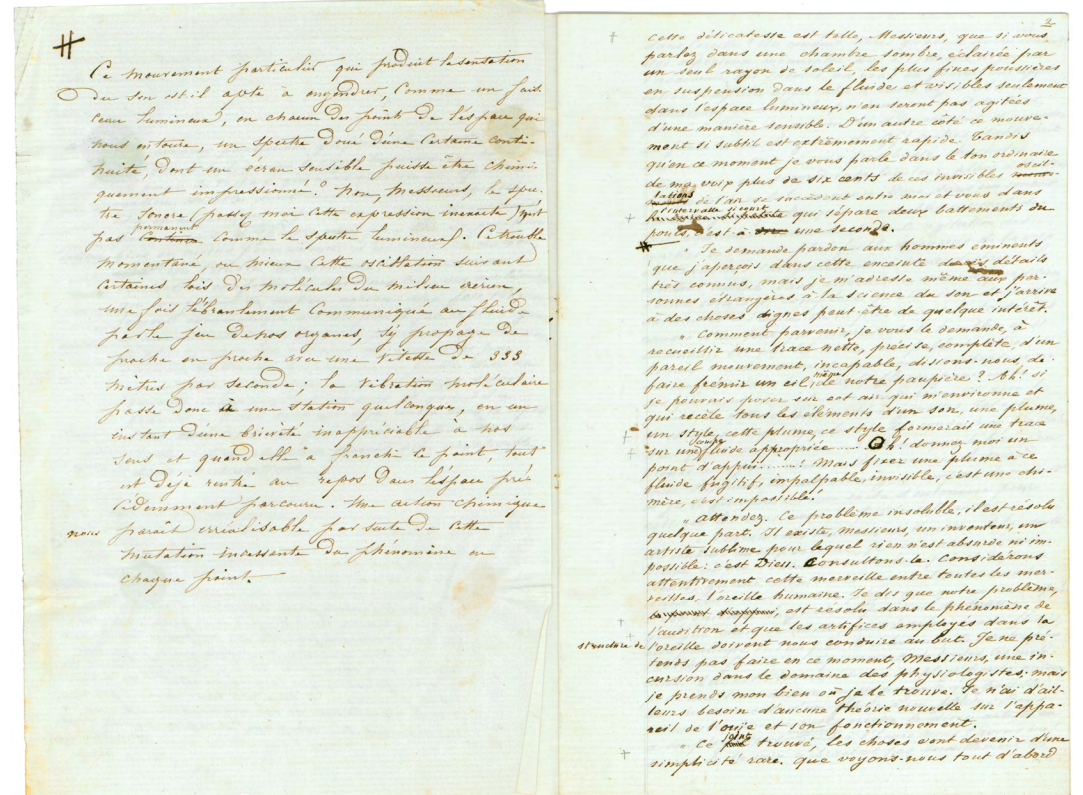 #
Ce mouvement particulier qui produit la sensation
du son est-il apte à engendrer, comme un fais
ceau lumineux, en chacun des points de l'espace qui
nous entoure, un spectre doué d'une certaine conti-
nuité, dont un écran sensible puisse être chimi-
quement impressionné? Non, Messieurs, le spec-
tre sonore (passez moi cette expression inexacte) n'est
permanent
pas continu comme le spectre lumineux. Ce trouble
momentané ou mieux cette oscillation suivant
certaines lois des molécules du milieu aérien,
une fois l'ébranlement communiqué au fluide
par le jeu de nos organes, s'y propage de
proche en proche avec une vitesse de 333
mètres par seconde; la vibration moléculaire
passe donc à une station quelconque, en un
instant d'une brièveté inappréciable à nos
sens et quand elle a franchi le point, tout
est déjà rentré au repos dans l'espace pré
cédemment parcouru. Une action chimique
nous paraît irréalisable par suite de cette
mutation incessante du phénomène en
chaque point.
2
cette délicatesse est telle, Messieurs, que si vous
parlez dans une chambre sombre, éclairée par
un seul rayon de soleil, les plus fines poussières
en suspension dans le fluide et visibles seulement
dans l'espace lumineux, n'en seront pas agitées
d'une manière sensible. D'un autre côté ce mouve-
ment si subtil est extrêmement rapide. Tandis
qu'en ce moment je vous parle dans le ton ordinaire
oscil-
de ma voix plus de six cents de ces invisibles
lations
de l'air se succèdent entre moi et vous dans
l'intervalle si court
qui sépare deux battements du
pouls, c'est à une seconde.
# " Je demande pardon aux hommes éminents
que j'aperçois dans cette enceinte de ces détails
très connus, mais je m'adresse même aux per-
sonnes étrangères à la science du son et j'arrive
à des choses dignes peut-être de quelque intérêt.
" Comment parvenir, je vous le demande, à
recueillir une trace nette, précise, complète, d'un
pareil mouvement, incapable, disons-nous, de
même
faire frémir un cil de notre paupière? Ah! si
je pouvais poser sur cet air qui m'environne et
qui recèle tous les éléments d'un son, une plume,
un style, cette plume, ce style formerait une trace
couche
sur une fluide appropriée ..... Oh! donnez moi un
point d'appui .......! Mais fixer une plume à ce
fluide fugitif, impalpable, invisible, c'est une chi-
mère, c'est impossible!
" Attendez. Ce problème insoluble, il est résolu
quelque part. Il existe, Messieurs, un inventeur, un
artiste sublime pour lequel rien n'est absurde ni im-
possible: c'est Dieu. Consultons-le. Considérons
attentivement cette merveille entre toutes les mer-
veilles, l'oreille humaine. Je dis que notre problème,
est résolu dans le phénomène de
l'audition et que les artifices employés dans la
structure de l'oreille doivent nous conduire au but. Je ne pré-
tends pas faire en ce moment, Messieurs, une in-
cursion dans le domaine des physiologistes; mais
je prends mon bien où je le trouve. Je n'ai d'ail-
leurs besoin d'aucune théorie nouvelle sur l'appa-
reil de l'ouïe et son fonctionnement.
" Ce joint trouvé, les choses vont devenir d'une
simplicité rare. que voyons-nous tout d'abord